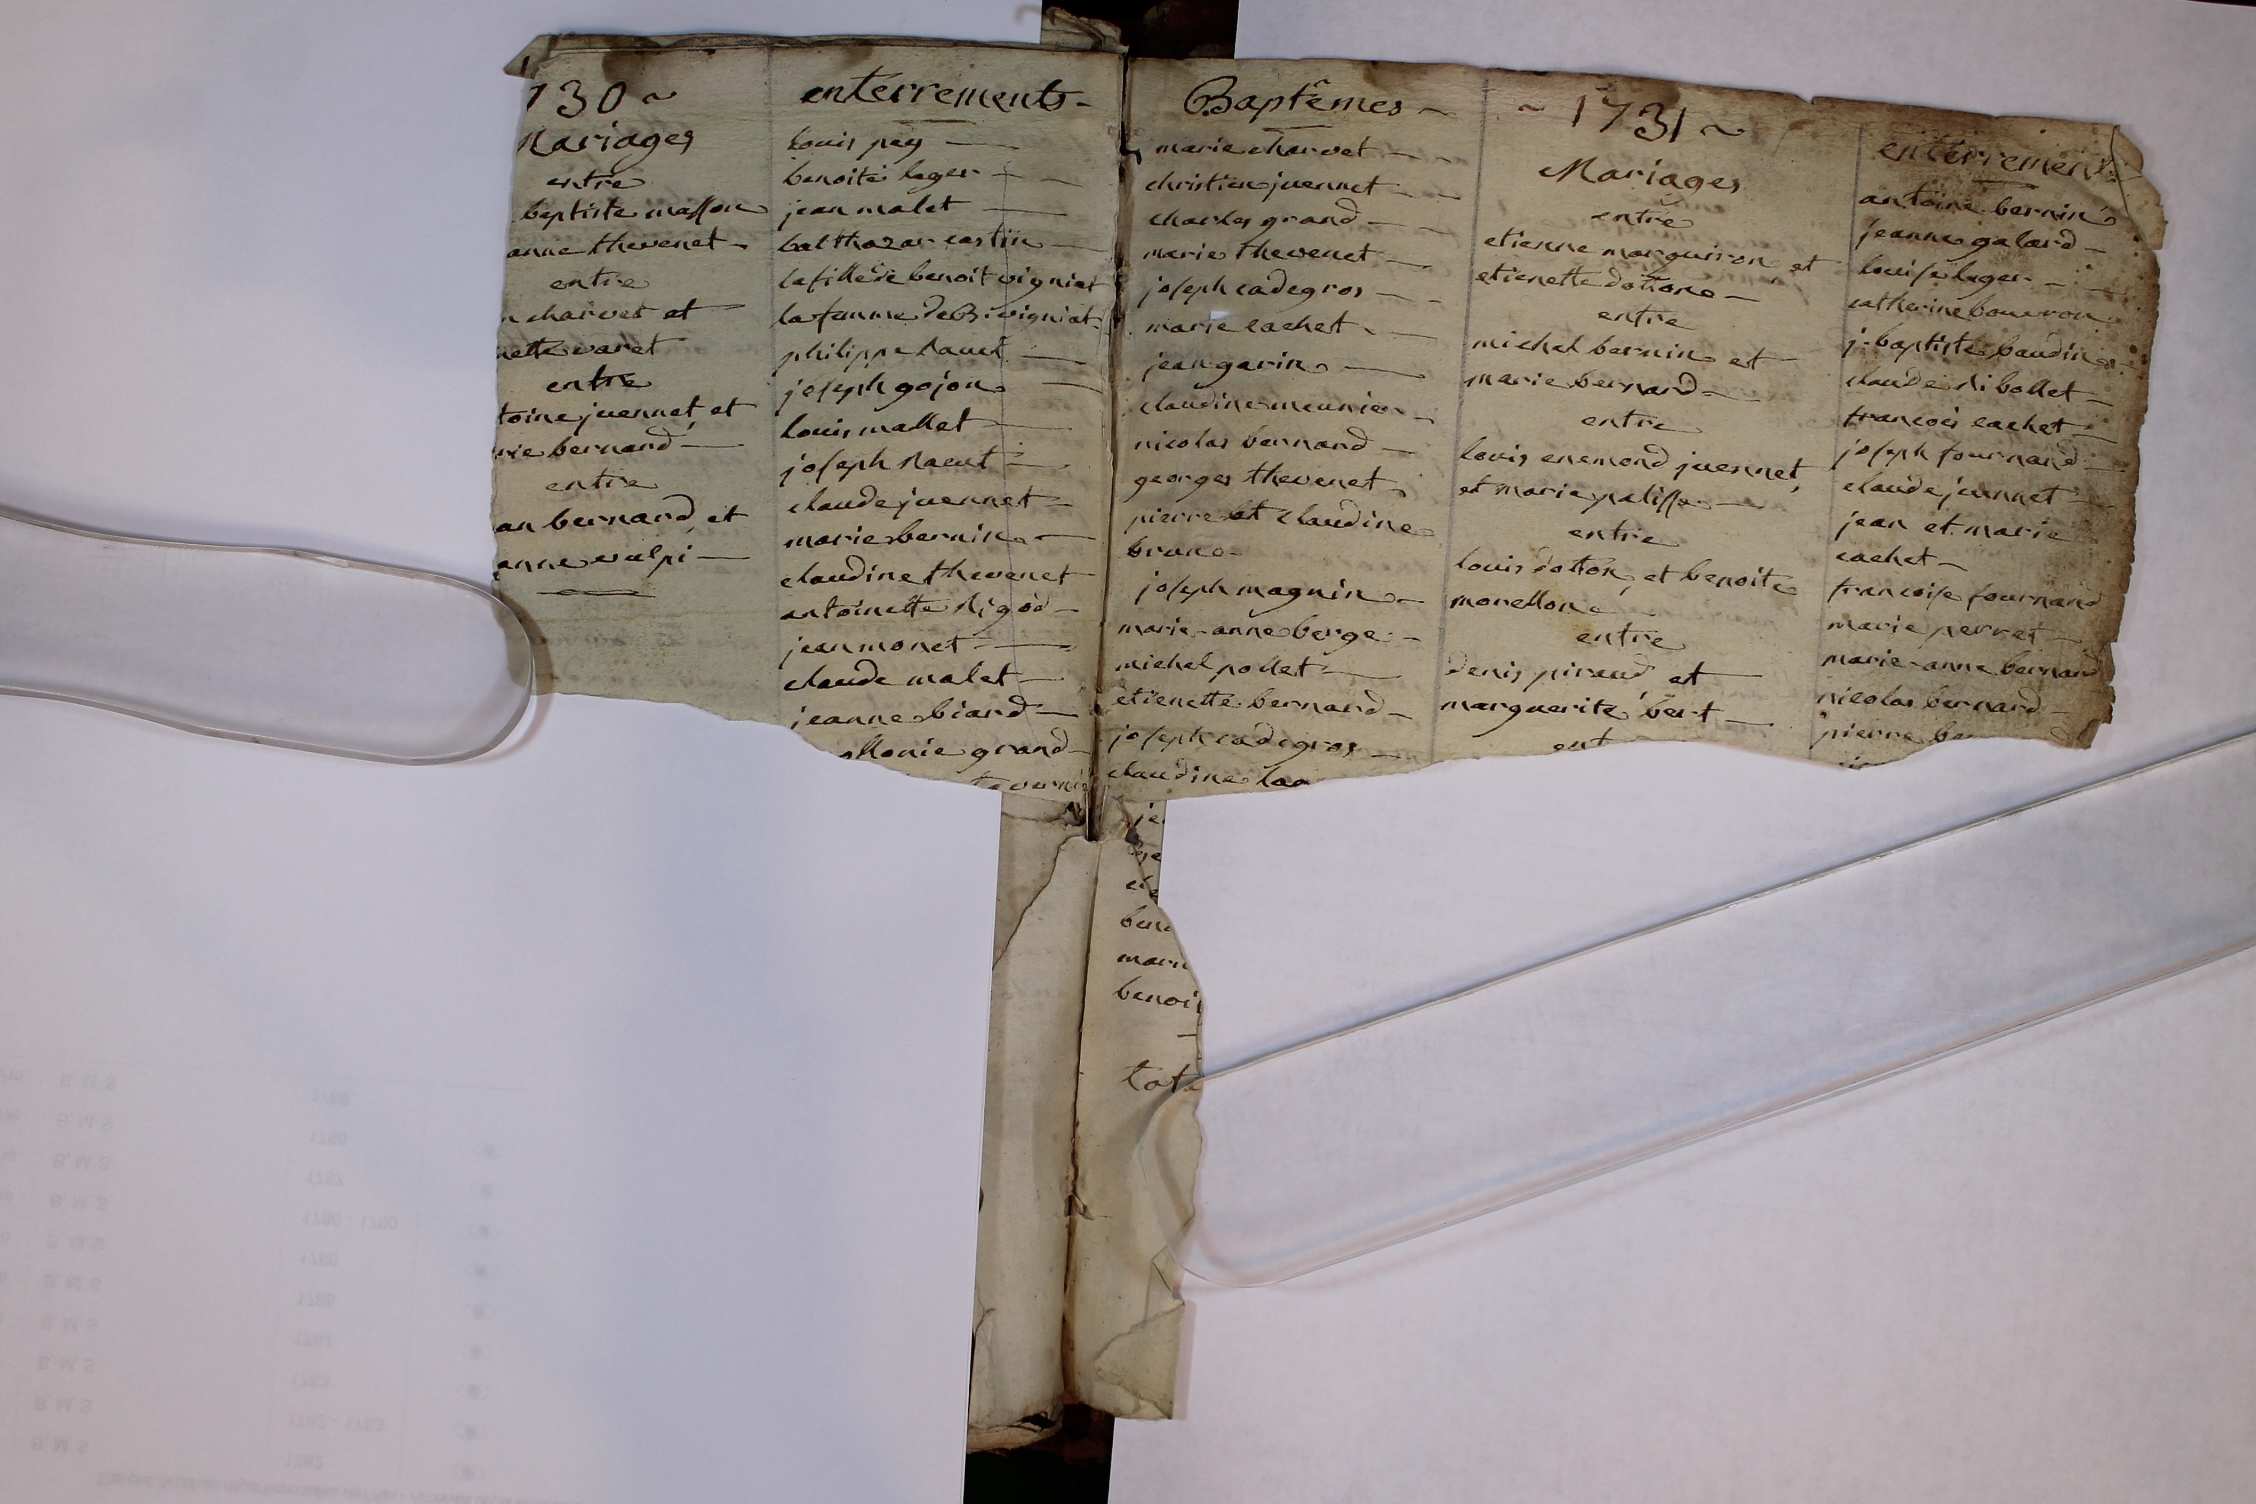 130 ~
Mariages
entre
baptiste masson
anne thevenet
entre
charvet et
nette varet
entre
toine juennet, et
rie bernard
entre
an bernard, et
anne vulpi
enterrements
Louis pey
benoite leger
jean malet
balthazar costiin
la fille de benoit vigniat
la femme de B. vigniat
philippe
joseph gojon
Louis mallet
joseph
claude juennet
marie bernin
claudine thevenet
antoinette rigod
jean monet
claude malet
jeanne biard
llonie grand
tavernie
Baptêmes
marie charvet
christien juennet
charles grand
marie thevenet
joseph cadegros
marie cachet
jean garin
claudine meunier
nicolas bernard
georges thevenet
pierre et claudine
brune
joseph magnin
marie-anne berge
michel pollet
etienette bernard
joseph cadegros
claudine
je
ge
et
ben
mari
benoi
tot
~ 1731 ~
Mariages
entre
etienne marguiron et
etienette dotione
entre
michel bernin et
marie bernard
entre
louis enemond juennet,
et marie palisse
entre
louis dotton, et benoite
morellon
entre
denis piraud et
marguerite bert
ent
enterrement
antoine bernin
jeanne galard
louise leger
catherine bouvron
j. baptiste baudin
claude ribollet
francois cachet
joseph fournand
claude juennet
jean et marie
cachet
francoise fournand
marie perret
marie-anne bernard
nicolas bernard
pierre be